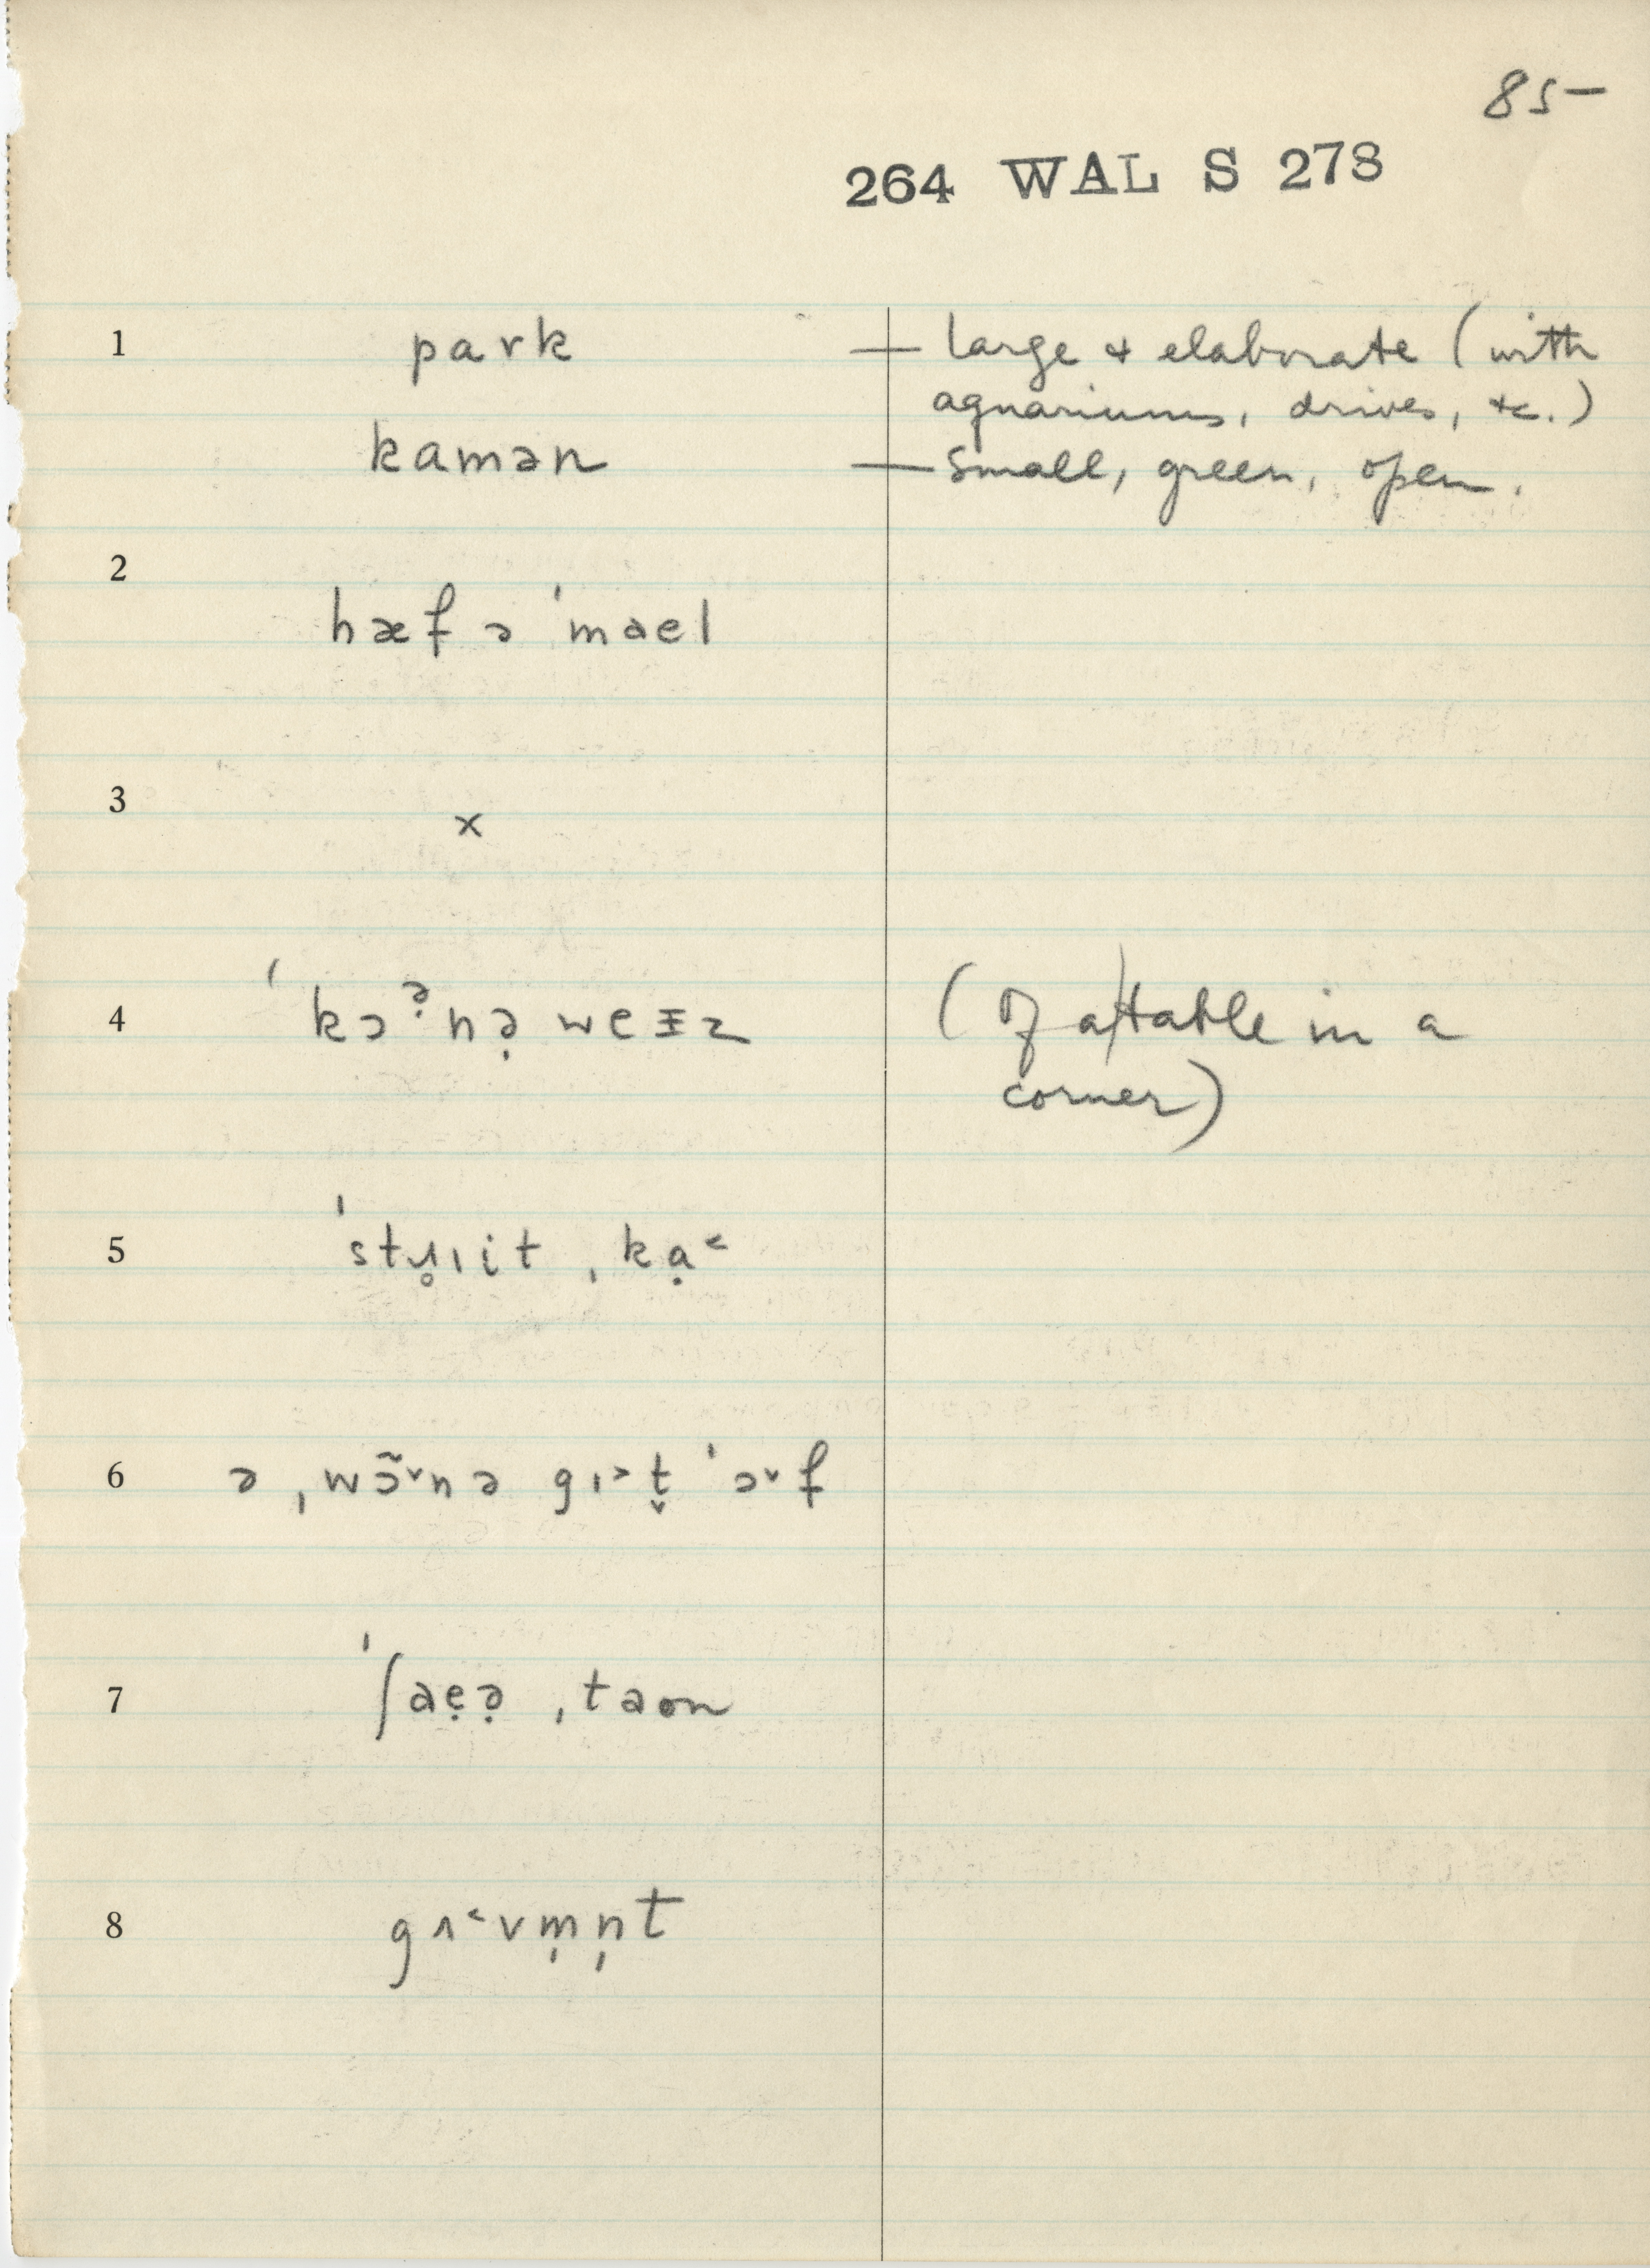 85-
264 WAL S 273
1 park — large & elaborate (with
aquariums, drives, &c.)
kamən — small, green, open.
2
hæf ə ˈmael
3
x
4 ˈkɔᵊ̣nə̣ weɪ̵z (of a table in a
corner)
5 ˈstɹ̥ɪit ˌkạ˂
6 ə ˌwɔ̃˅nə gɪ˃t̬ ˈɔ˅f
7 ˈʃaẹə̣ ˌtaon
8 gʌ˂vm̩n̩t